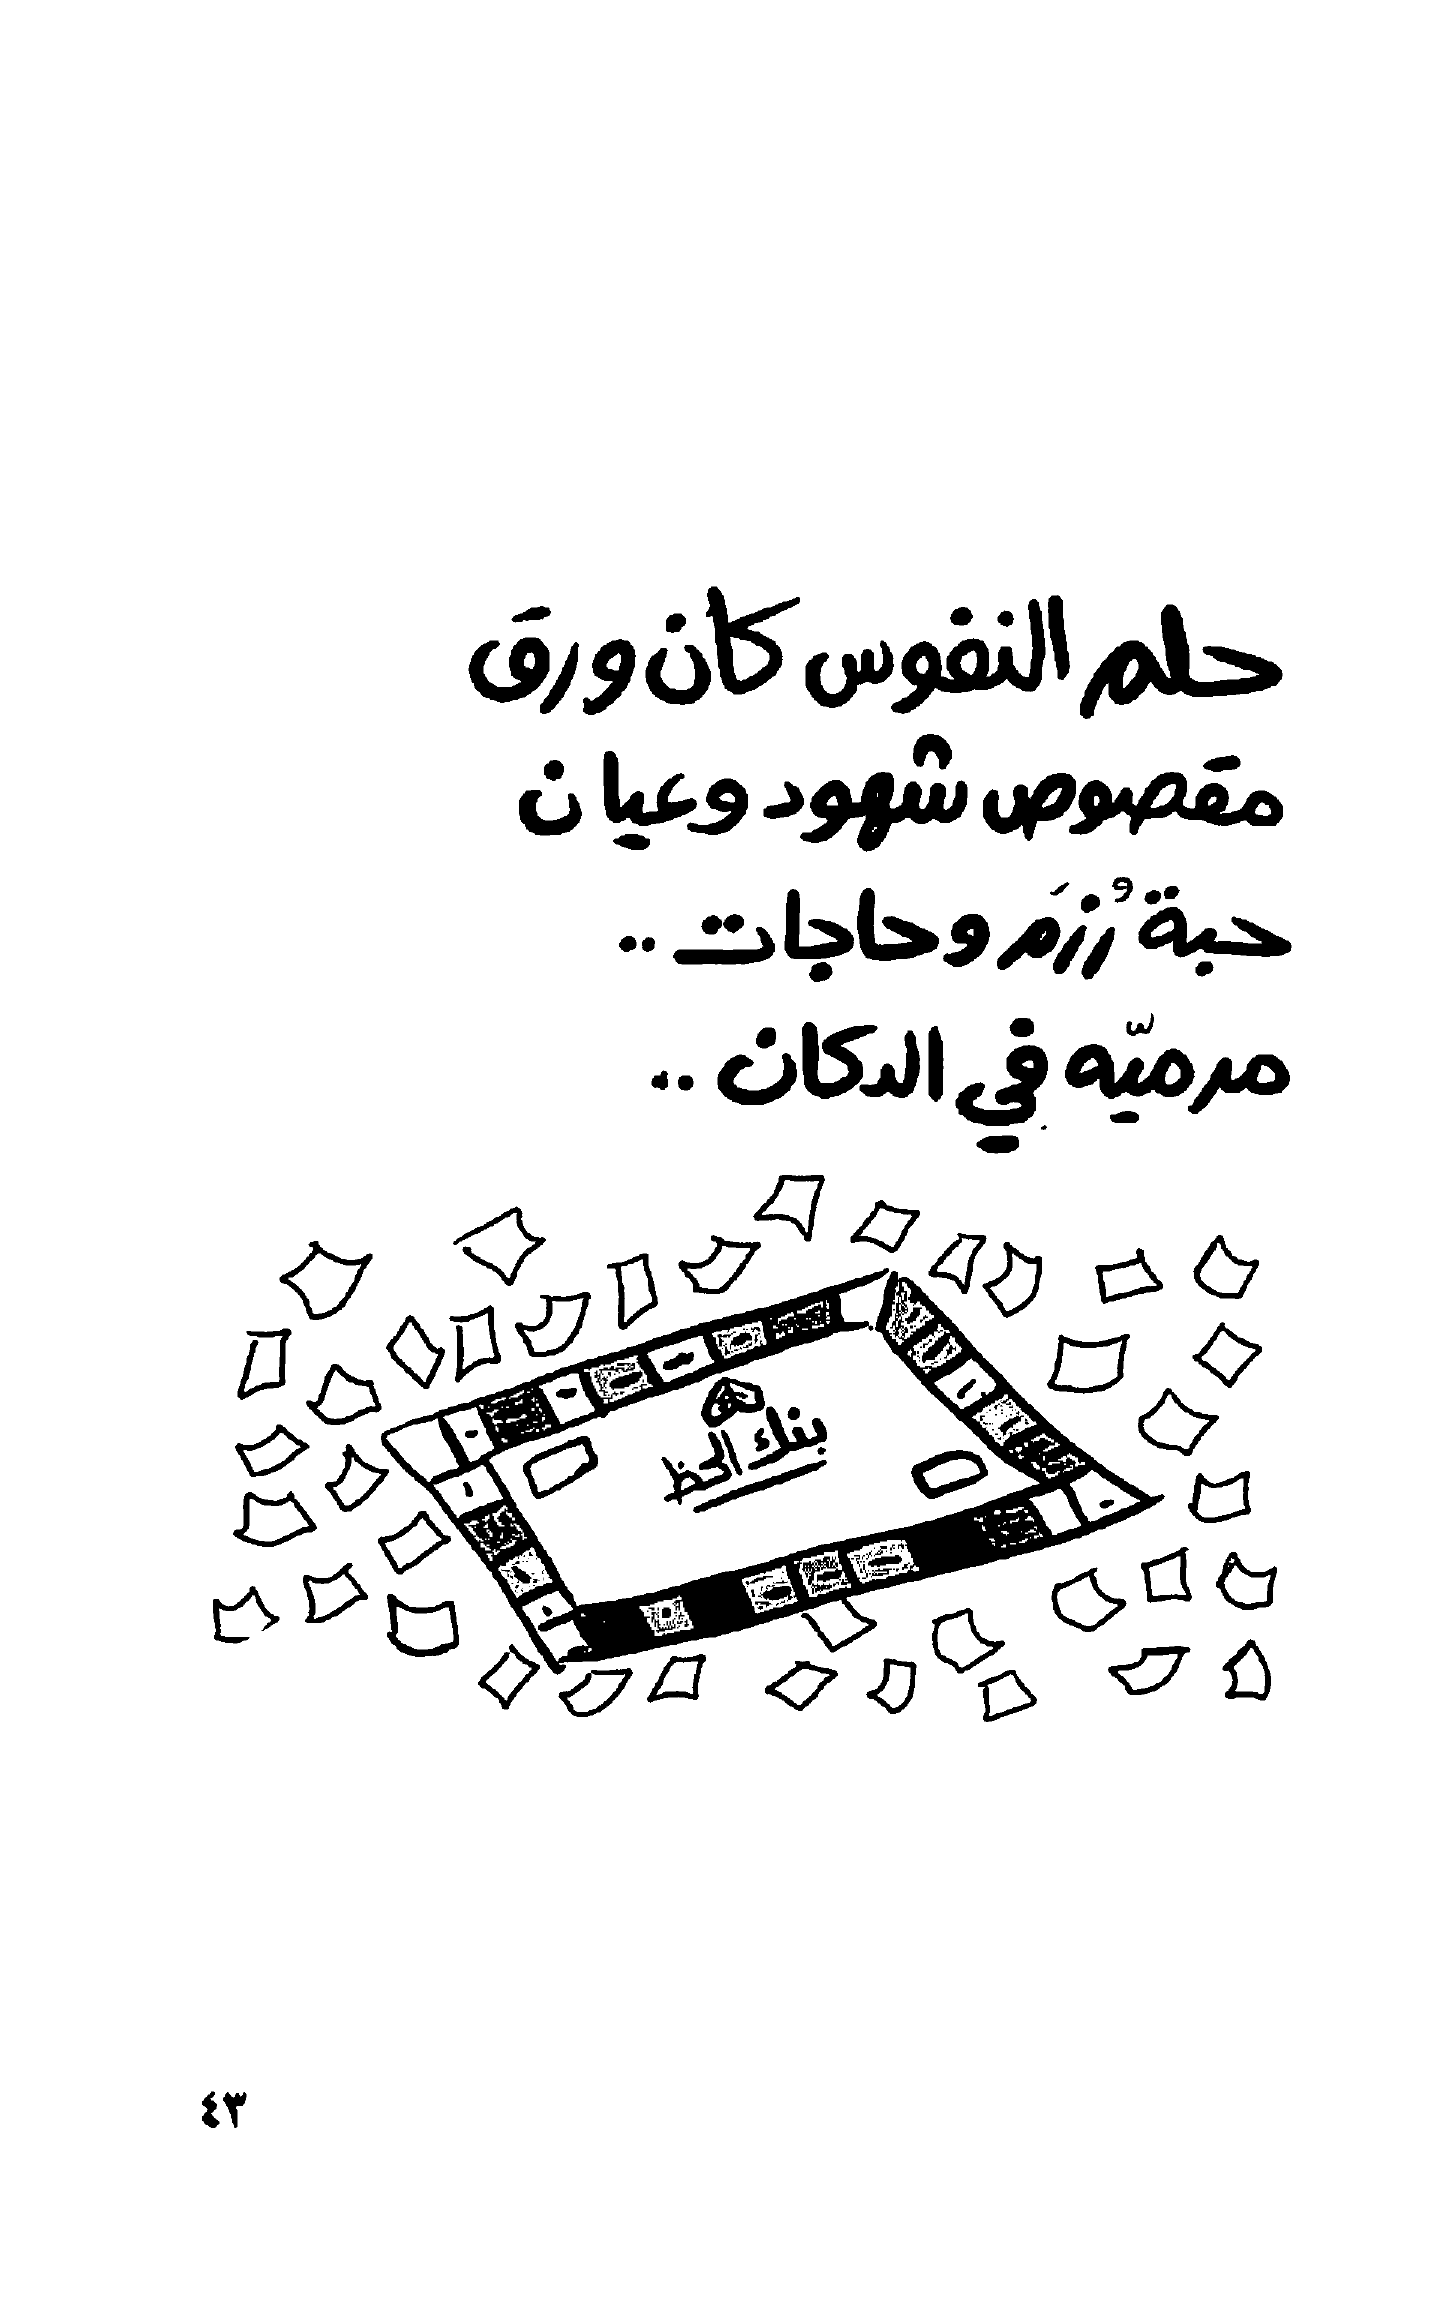 حلم النفوس كان ورق
مقصوص شهود وعيان
حبة رُزَم وحاجات ..
مرميّه في الدكان ..
بنك الحظ
٤٣